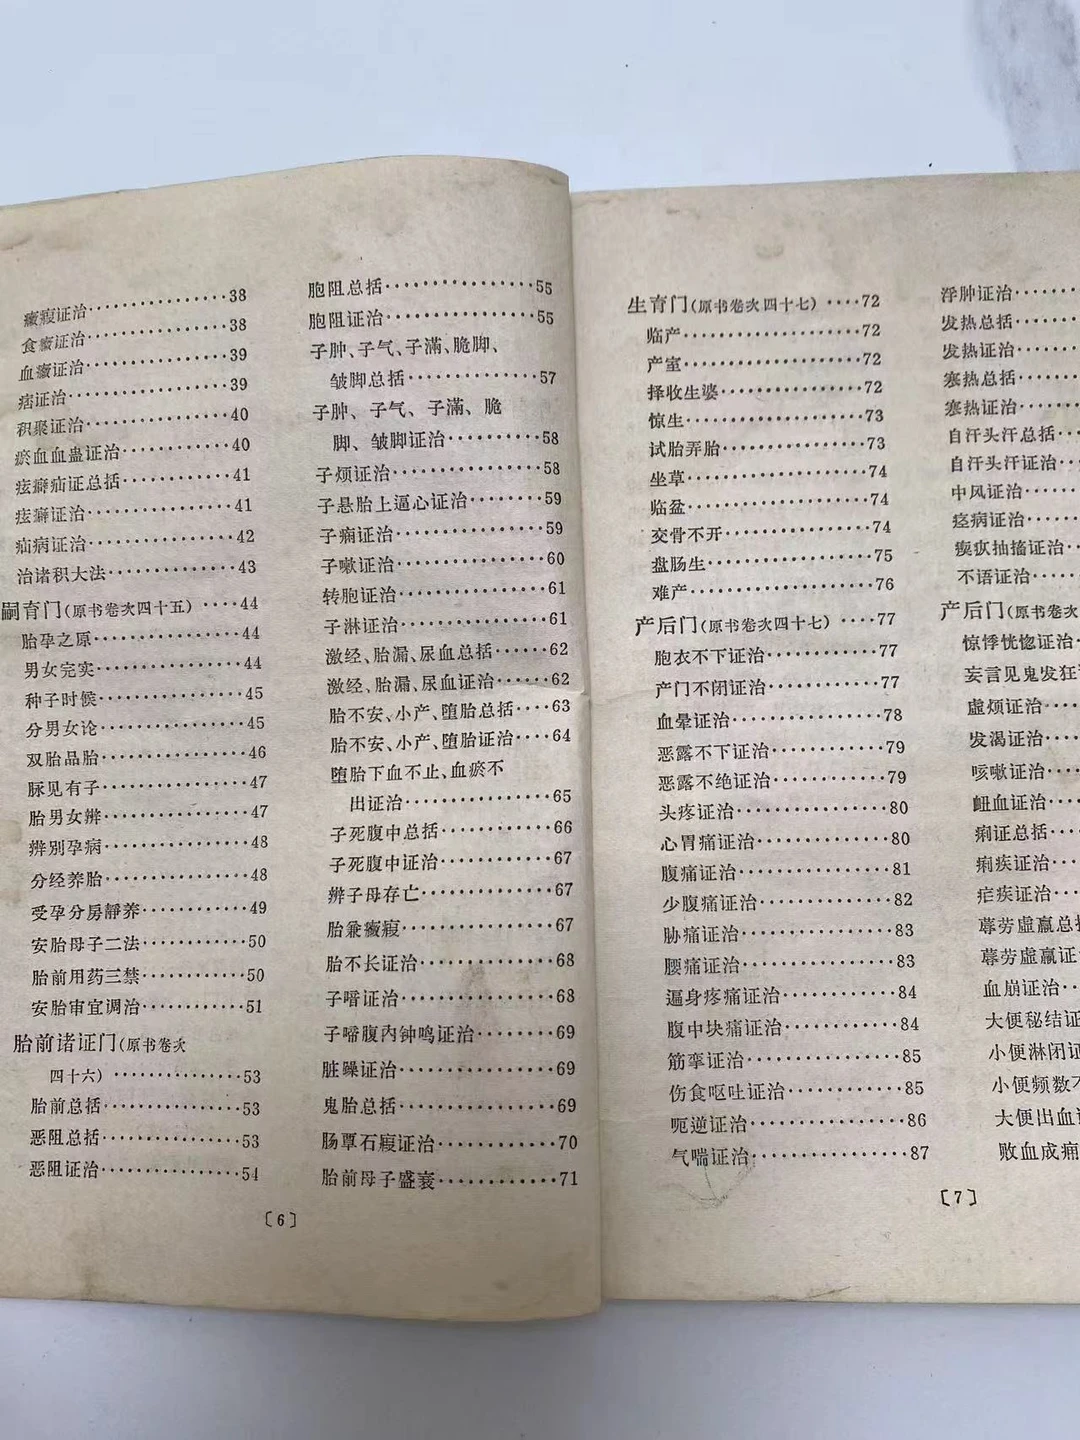 癥瘕证治················38
食癥证治················38
血癥证治················39
痞证治················39
积聚证治················40
瘀血血蛊证治············40
痃癖疝证总括············41
痃癖证治················41
疝病证治················42
治诸积大法··············43
嗣育门(原书卷次四十五)····44
胎孕之原················44
男女完实················44
种子时候················45
分男女论················45
双胎品胎················46
脉见有子················47
胎男女辨················47
辨别孕病················48
分经养胎················48
受孕分房静养············49
安胎母子二法············50
胎前用药三禁············50
安胎审宜调治············51
胎前诸证门(原书卷次
四十六)··············53
胎前总括················53
恶阻总括················53
恶阻证治················54
胞阻总括················55
胞阻证治················55
子肿、子气、子满、脆脚、
皱脚总括··············57
子肿、子气、子满、脆
脚、皱脚证治··········58
子烦证治················58
子悬胎上逼心证治········59
子痫证治················59
子嗽证治················60
转胞证治················61
子淋证治················61
激经、胎漏、尿血总括······62
激经、胎漏、尿血证治······62
胎不安、小产、堕胎总括····63
胎不安、小产、堕胎证治····64
堕胎下血不止、血瘀不
出证治················65
子死腹中总括············66
子死腹中证治············67
辨子母存亡··············67
胎兼癥瘕················67
胎不长证治··············68
子喑证治················68
子啼腹内钟鸣证治········69
脏躁证治················69
鬼胎总括················69
肠覃石瘕证治············70
胎前母子盛衰············71
〔6〕
生育门(原书卷次四十七)····72
临产················72
产室················72
择收生婆················72
惊生················73
试胎弄胎················73
坐草················74
临盆················74
交骨不开················74
盘肠生················75
难产················76
产后门(原书卷次四十七)····77
胞衣不下证治············77
产门不闭证治············77
血晕证治················78
恶露不下证治············79
恶露不绝证治············79
头疼证治················80
心胃痛证治··············80
腹痛证治················81
少腹痛证治··············82
胁痛证治················83
腰痛证治················83
遍身疼痛证治············84
腹中块痛证治············84
筋挛证治················85
伤食呕吐证治············85
呃逆证治················86
气喘证治················87
浮肿证治········
发热总括········
发热证治········
寒热总括········
寒热证治········
自汗头汗总括····
自汗头汗证治····
中风证治········
痉病证治········
瘈疭抽搐证治····
不语证治········
产后门(原书卷次
惊悸恍惚证治··
妄言见鬼发狂
虚烦证治······
发渴证治······
咳嗽证治······
衄血证治······
痢证总括······
痢疾证治······
疟疾证治······
蓐劳虚羸总
蓐劳虚羸证
血崩证治····
大便秘结证
小便淋闭证
小便频数不
大便出血
败血成痈
〔7〕